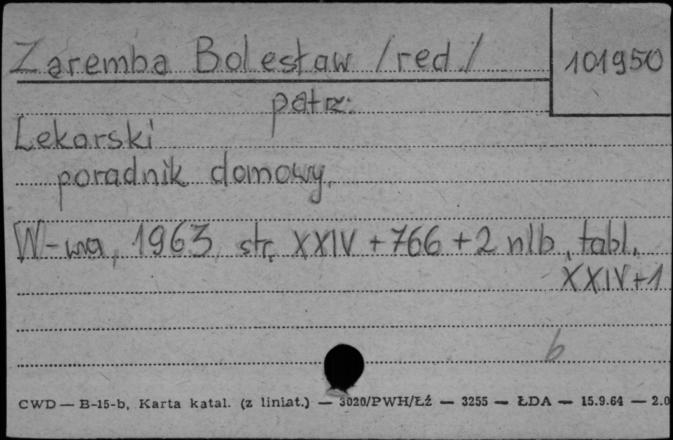 Zaremba Bolesław /red./ 101950
patrz:
Lekarski
poradnik domowy.
W-wa, 1963, str. XXIV + 766 + 2 nlb, tabl.
XXIV+1
b
CWD — B-15-b, Karta katal. (z liniat.) — 3020/PWH/Łź — 3255 — ŁDA — 15.9.64 — 2.0